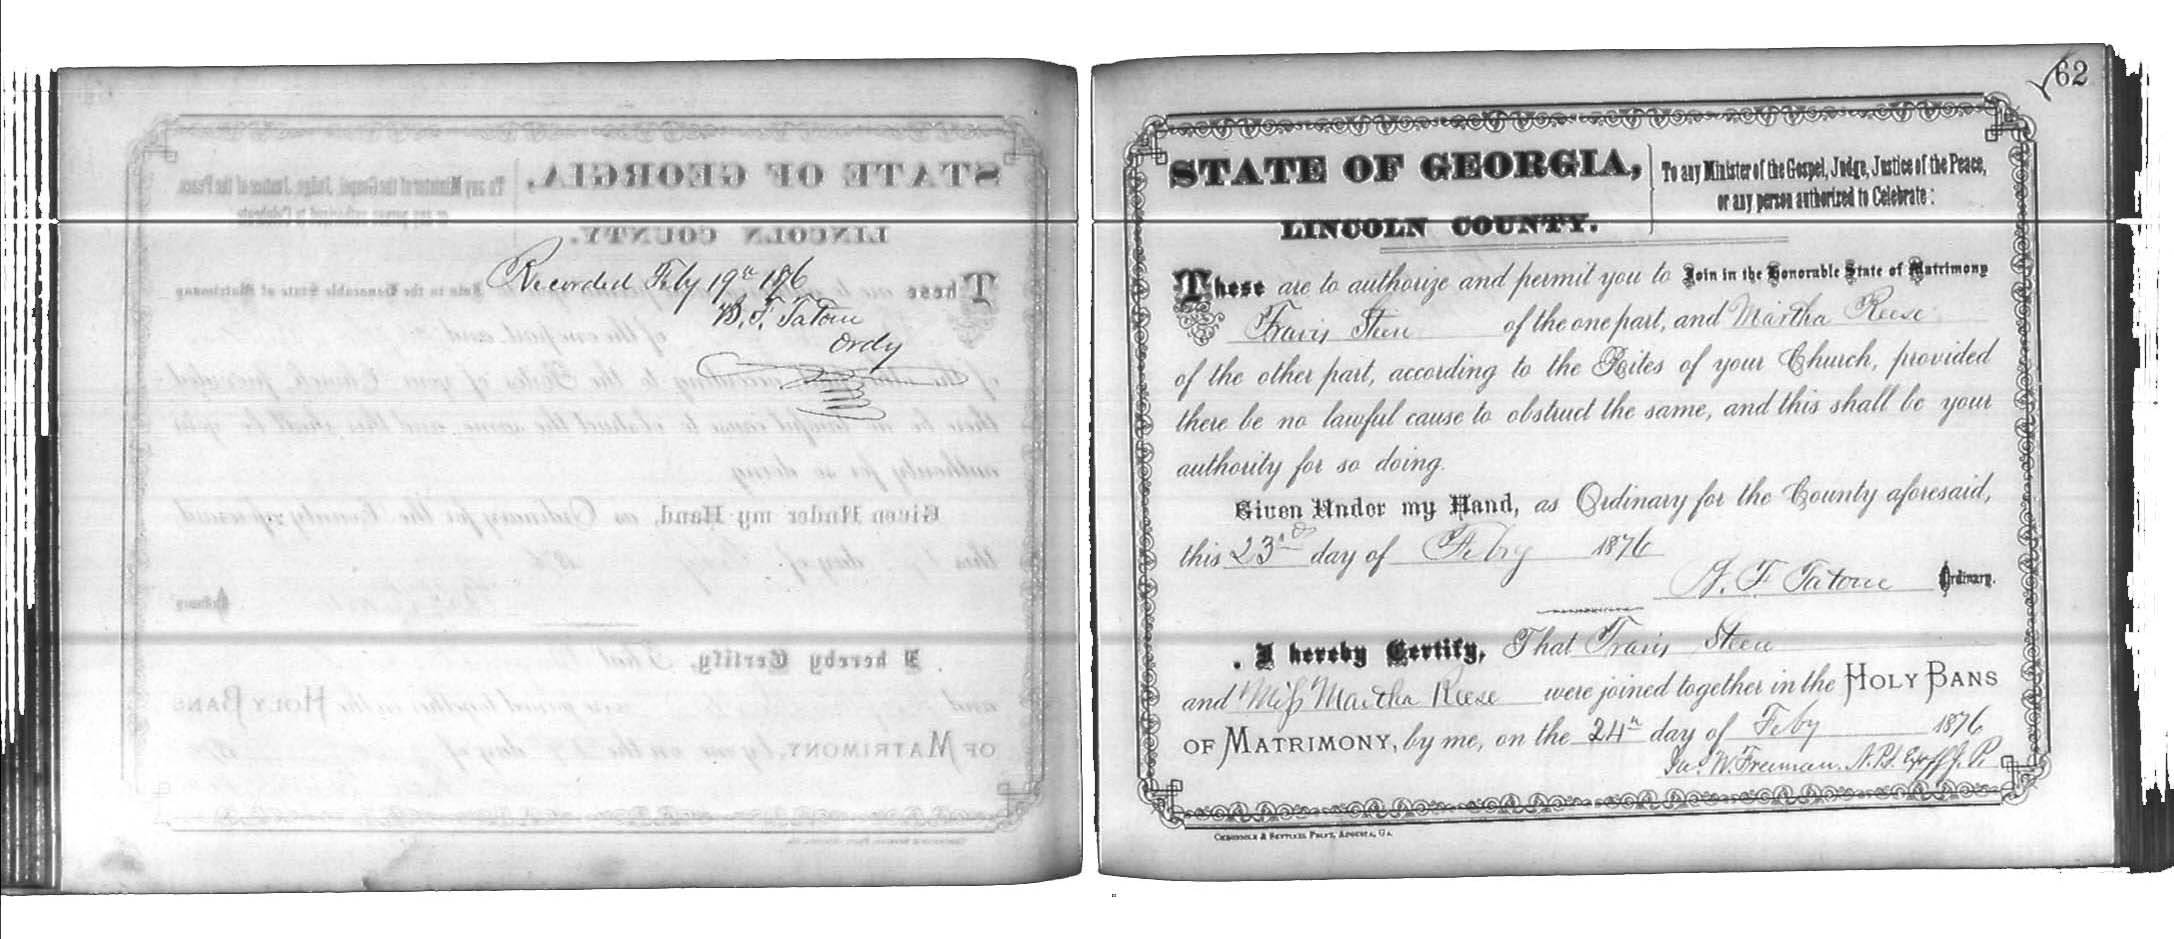 Recorded Feby 19th 1876
B. F. Tatom
Ordy
62
STATE OF GEORGIA,
LINCOLN COUNTY.
To any Minister of the Gospel, Judge, Justice of the Peace,
or any person authorized to Celebrate:
These are to authorize and permit you to Join in the Honorable State of Matrimony
Travis Steen of the one part, and Martha Reese
of the other part, according to the Rites of your Church, provided
there be no lawful cause to obstruct the same, and this shall be your
authority for so doing.
Given Under my Hand, as Ordinary for the County aforesaid,
this 23rd day of Feby 1876
B. F. Tatom Ordinary.
I hereby Certify, That Travis Steen
and Miss Martha Reese were joined together in the HOLY BANS
OF MATRIMONY, by me, on the 24th day of Feby 1876
Jas. W. Freeman. N. P. & Ex off J. P.
CHRONICLE & SENTINEL PRINT, AUGUSTA, GA.